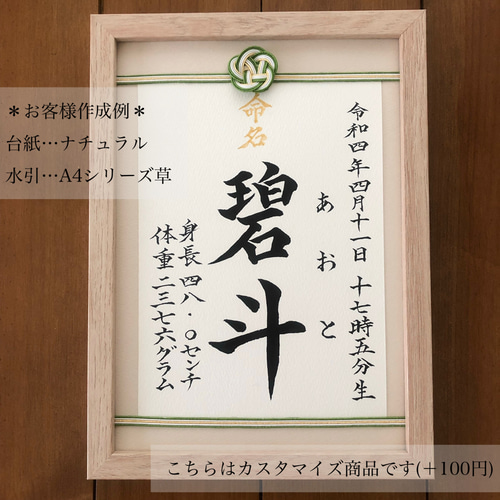 ＊お客様作成例＊
台紙…ナチュラル
水引…A4シリーズ草
命名
令和四年四月十一日 十七時五分生
あおと
碧斗
身長 四八．〇センチ
体重 二三七六グラム
こちらはカスタマイズ商品です(＋100円)